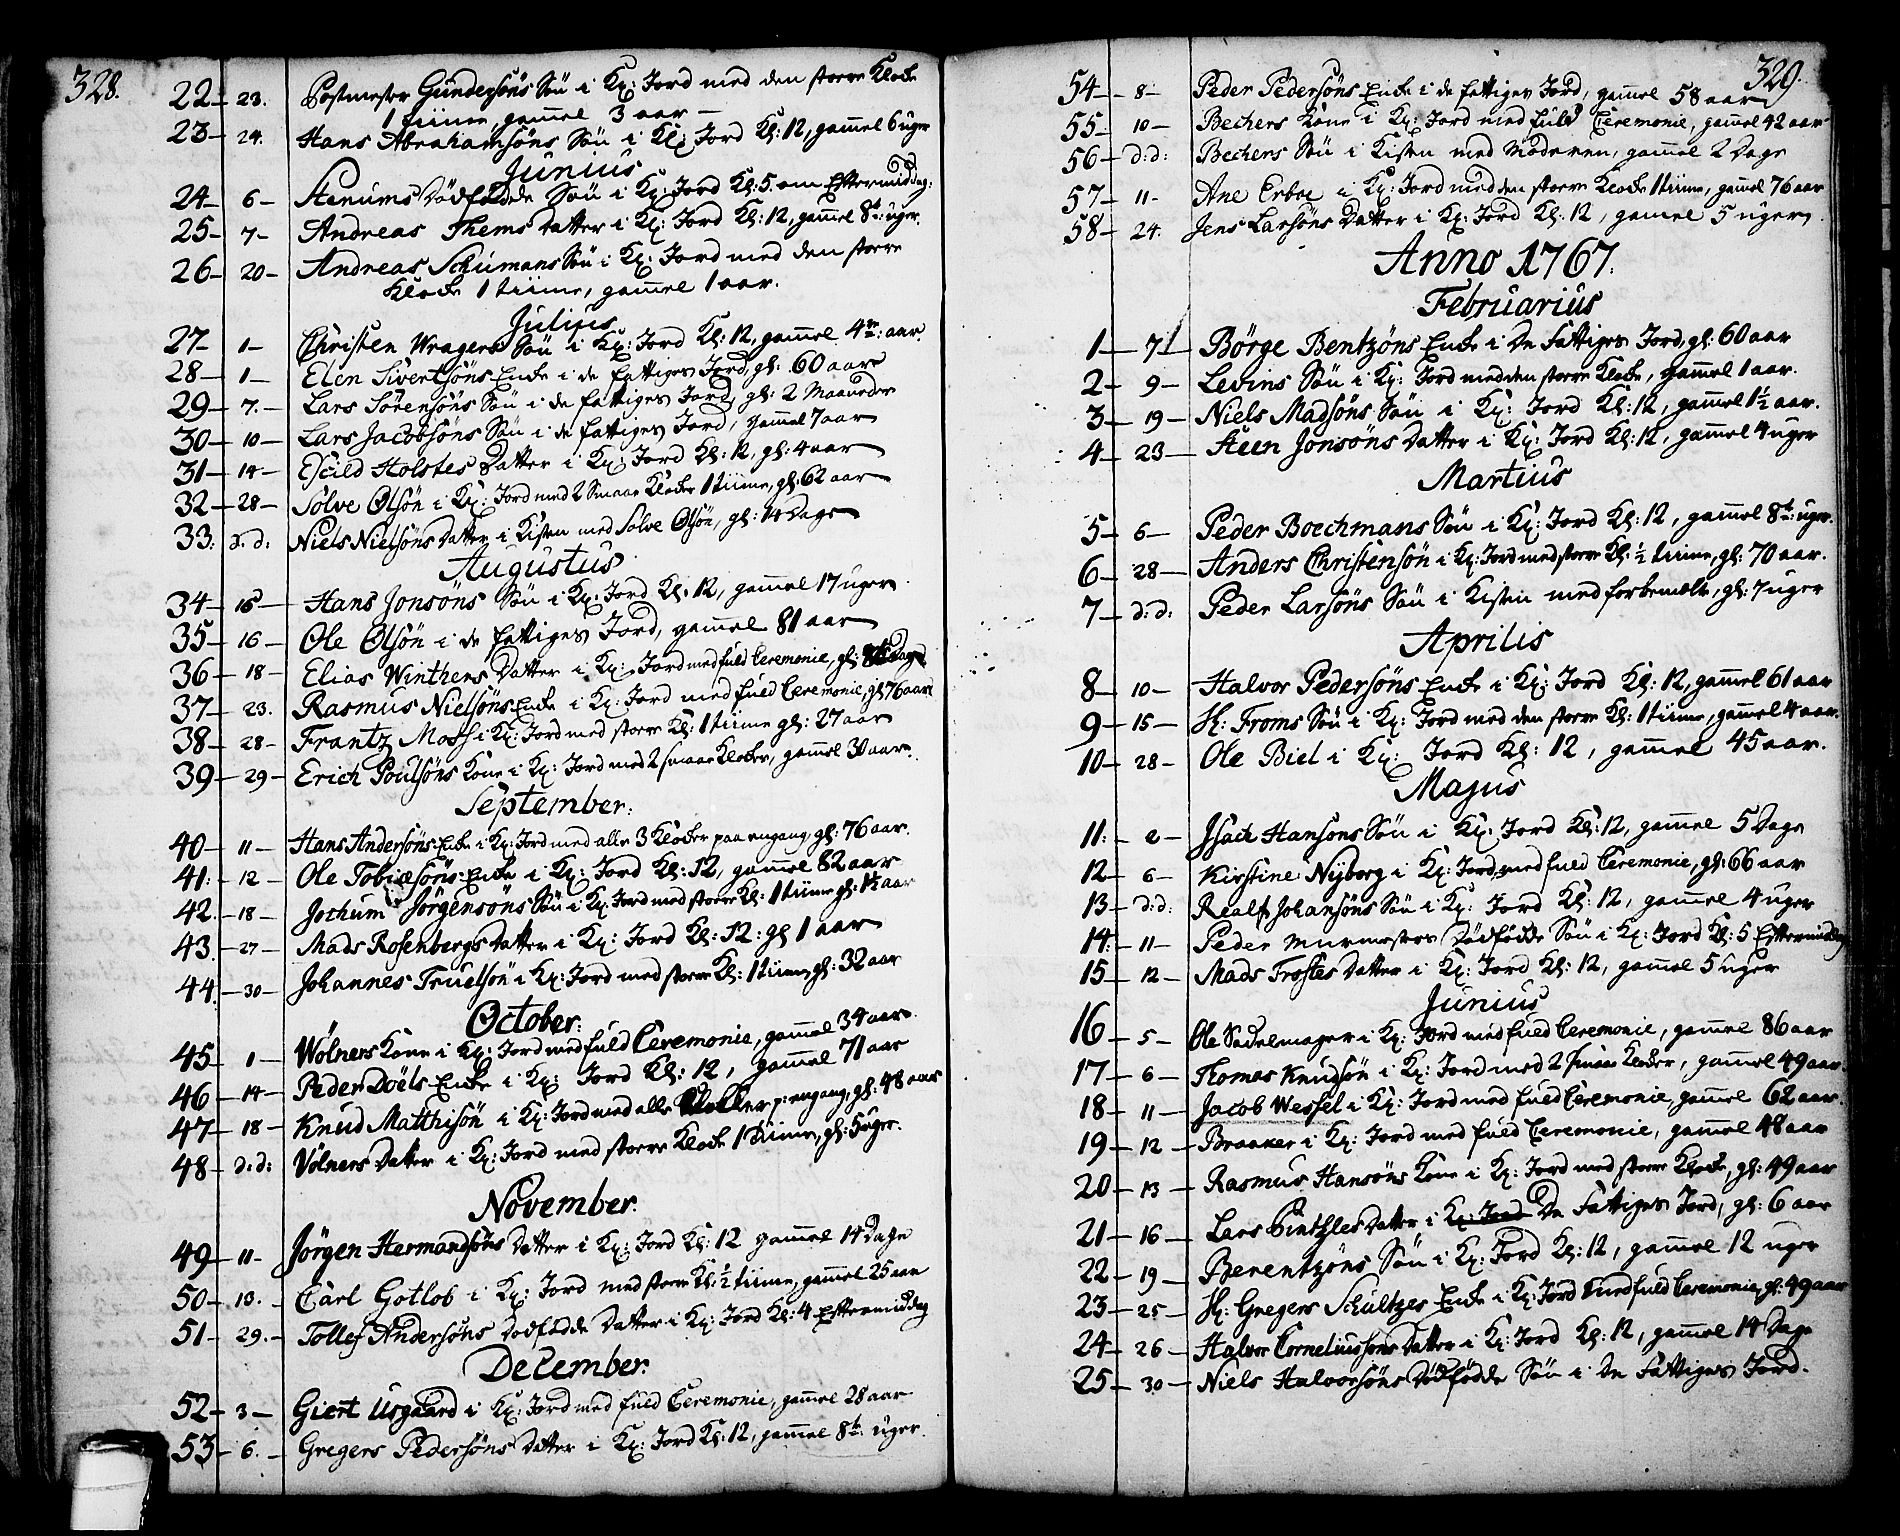 328.
22 — 23. Postmester Gundersöns Sön i Kɧ: Jord med den storre Klocke
1 tiime, gammel 3 aar —
23 — 24. Hans Abrahamsöns Sön i Kɧ: Jord Kl: 12, gammel 6 uger
Junius
24 — 6 — Stenums Dödfödde Sön i Kɧ: Jord Kl: 5 om Eftermiddag:
25 — 7 — Andreas Thems Datter i Kɧ: Jord Kl: 12, gammel 8te uger.
26 — 20 — Andreas Schumans Sön i Kɧ: Jord med den storre
Klocke 1 tiime, gammel 1 aar.
Julius
27 — 1 — Christen Wragers Sön i Kɧ: Jord Kl: 12, gammel 4re: aar.
28 — 1 — Elen Sivertsöns Encke i de fattiges Jord, gl: 60 aar
29 — 7. — Lars Sörensöns Sön i de fattiges Jord, gl: 2 Maaneder
30 — 10 — Lars Jacobsöns Sön i de fattiges Jord, gammel 7 aar
31 — 14 — Eschild Holstes Datter i Kɧ: Jord Kl: 12, gl: 4 aar
32 — 28 — Solve Olsön i Kɧ: Jord med 2 Smaae Klocker 1 tiime, gl: 62 aar
33. d. d: Niels Nielsöns Datter i Kisten med Solve Olsön, gl: 14 Dage
Augustus
34 — 15 — Hans Jonsöns Sön i Kɧ: Jord Kl: 12, gammel 17 uger
35 — 16 — Ole Olsön i de fattiges Jord, gammel 81 aar
36 — 18 — Elias Winthers Datter i Kɧ: Jord med fuld Ceremonie, gl: Dage
37 — 23. Rasmus Nielsöns Encke i Kɧ: Jord med fuld Ceremonie, gl 76 aar
38 — 28 — Frantz Moss i Kɧ: Jord med storre Kl: 1 tiime gl: 27 aar
39 — 29 — Erich Poulsöns Kone i Kɧ: Jord med 2 smaae Klocker, gammel 30 aar.
September:
40 — 11 — Hans Andersöns Encke i Kɧ: Jord med alle 3 Klocker paa engang, gl: 76 aar.
41: — 12 — Ole Tobiæsöns Encke i Kɧ: Jord Kl: 12, gammel 82 aar
42. — 18 — Jochum Jörgensöns Sön i Kɧ: Jord med storre Kl: 1 tiime gl: 1½ aar
43. — 27 — Mads Rosenbergs Datter i Kɧ: Jord Kl: 12: gl 1 aar
44. — 30 — Johannes Truelsön i Kɧ: Jord med storre Kl: 1 tiime, gl: 32 aar
October:
45 — 1 — Wölners Kone i Kɧ: Jord med fuld Ceremonie, gammel 34 aar.
46 — 14 — Peder Doëls Encke i Kɧ: Jord Kl: 12, gammel 71 aar
47 — 18 — Knud Matthisön i Kɧ: Jord med alle Klocker p: engang, gl: 48 aar
48 — d: d: Völners Datter i Kɧ: Jord med storre Klocke 1 tiime, gl: 5 uger.
November:
49 — 11 — Jörgen Hermansöns Datter i Kɧ: Jord Kl: 12 gammel 14 Dage
50 — 13. — Carl Gotlob i Kɧ: Jord med storre Kl: ½ tiime, gammel 25 aar
51 — 29. — Tollef Andersöns Dödfödde Datter i Kɧ: Jord Kl: 4 Eftermiddag
December:
52 — 3 — Giert Usgaard i Kɧ: Jord med fuld Ceremonie, gammel 28 aar
53 — 6. — Gregers Pedersöns Datter i Kɧ: Jord Kl: 12, gammel 8te: uger.
329.
54 — 8 — Peder Pedersöns Encke i de fattiges Jord, gammel 58 aar
55 — 10 — Bechers Kone i Kɧ: Jord med fuld Ceremonie, gammel 42 aar
56 — d: d: Bechers Sön i Kisten med Moderen, gammel 2 Dage
57 — 11 — Ane Erboe i Kɧ: Jord med den storre Klocke 1 tiime, gammel 76 aar
58 — 24. Jens Larsöns Datter i Kɧ: Jord Kl: 12, gammel 5 uger
Anno 1767.
Februarius
1 — 7 — Börge Bentzöns Encke i De Fattiges Jord, gl: 60 aar
2 — 9 — Levins Sön i Kɧ: Jord med den storre Klocke, gammel 1 aar.
3 — 19 — Niels Madsöns Sön i Kɧ: Jord Kl: 12, gammel 1½ aar.
4 — 23 — Steen Jonsöns Datter i Kɧ: Jord Kl: 12, gammel 4 uger
Martius
5 — 6 — Peder Boechmans Sön i Kɧ: Jord Kl: 12, gammel 8te: uger.
6 — 28 — Anders Christensön i Kɧ: Jord med storre Kl: ½ tiime, gl: 70 aar.
7 — d: d: Peder Larsöns Sön i Kisten med forbemelte, gl: 7 uger
Aprilis
8 — 10 — Halvor Pedersöns Encke i Kɧ: Jord Kl: 12, gammel 61 aar
9 — 15 — H: Froms Sön i Kɧ: Jord med den storre Kl: 1 tiime, gammel 4 aar.
10 — 28 — Ole Biel i Kɧ: Jord Kl: 12, gammel 45 aar.
Majus
11: — 2 — Isach Hansöns Sön i Kɧ: Jord Kl: 12, gammel 5 Dage
12 — 6 — Kirstine Nyborg i Kɧ: Jord, med fuld Ceremonie, gl: 66 aar
13 — d: d: Realf Johansöns Sön i Kɧ: Jord Kl: 12, gammel 4 uger
14: — 11 — Peder Murmesters Dödfödde Sön i Kɧ: Jord Kl: 5 Eftermiddag
15 — 12 — Mads Frostes Datter i Kɧ: Jord Kl: 12, gammel 5 uger
Junius
16 — 5 — Ole Sadelmager i Kɧ: Jord med fuld Ceremonie, gammel 86 aar
17 — 6 — Thomas Knudsön i Kɧ: Jord med 2 smaae Klocker, gammel 49 aar.
18 — 11 — Jacob Wessel i Kɧ: Jord med fuld Ceremonie, gammel 62 aar.
19 — 12 — Braaker i Kɧ: Jord med fuld Ceremonie, gammel 48 aar
20 — 13 — Rasmus Hansöns Kone i Kɧ: Jord med storre Klocke, gl: 49 aar
21 — 16 — Lars Datter i Kɧ: Jord De Fattiges Jord, gl: 6 aar
22 — 19 — Berentzöns Sön i Kɧ: Jord Kl: 12, gammel 12 uger
23 — 25 — H: Gregers Schultzes Encke i Kɧ: Jord med fuld Ceremonie, gl: 49 aar
24 — 26 — Halvor Corneliussöns Datter i Kɧ: Jord Kl: 12, gammel 14 Dage
25 — 30 — Niels Halvorsöns Dödfödde Sön i De Fattiges Jord.